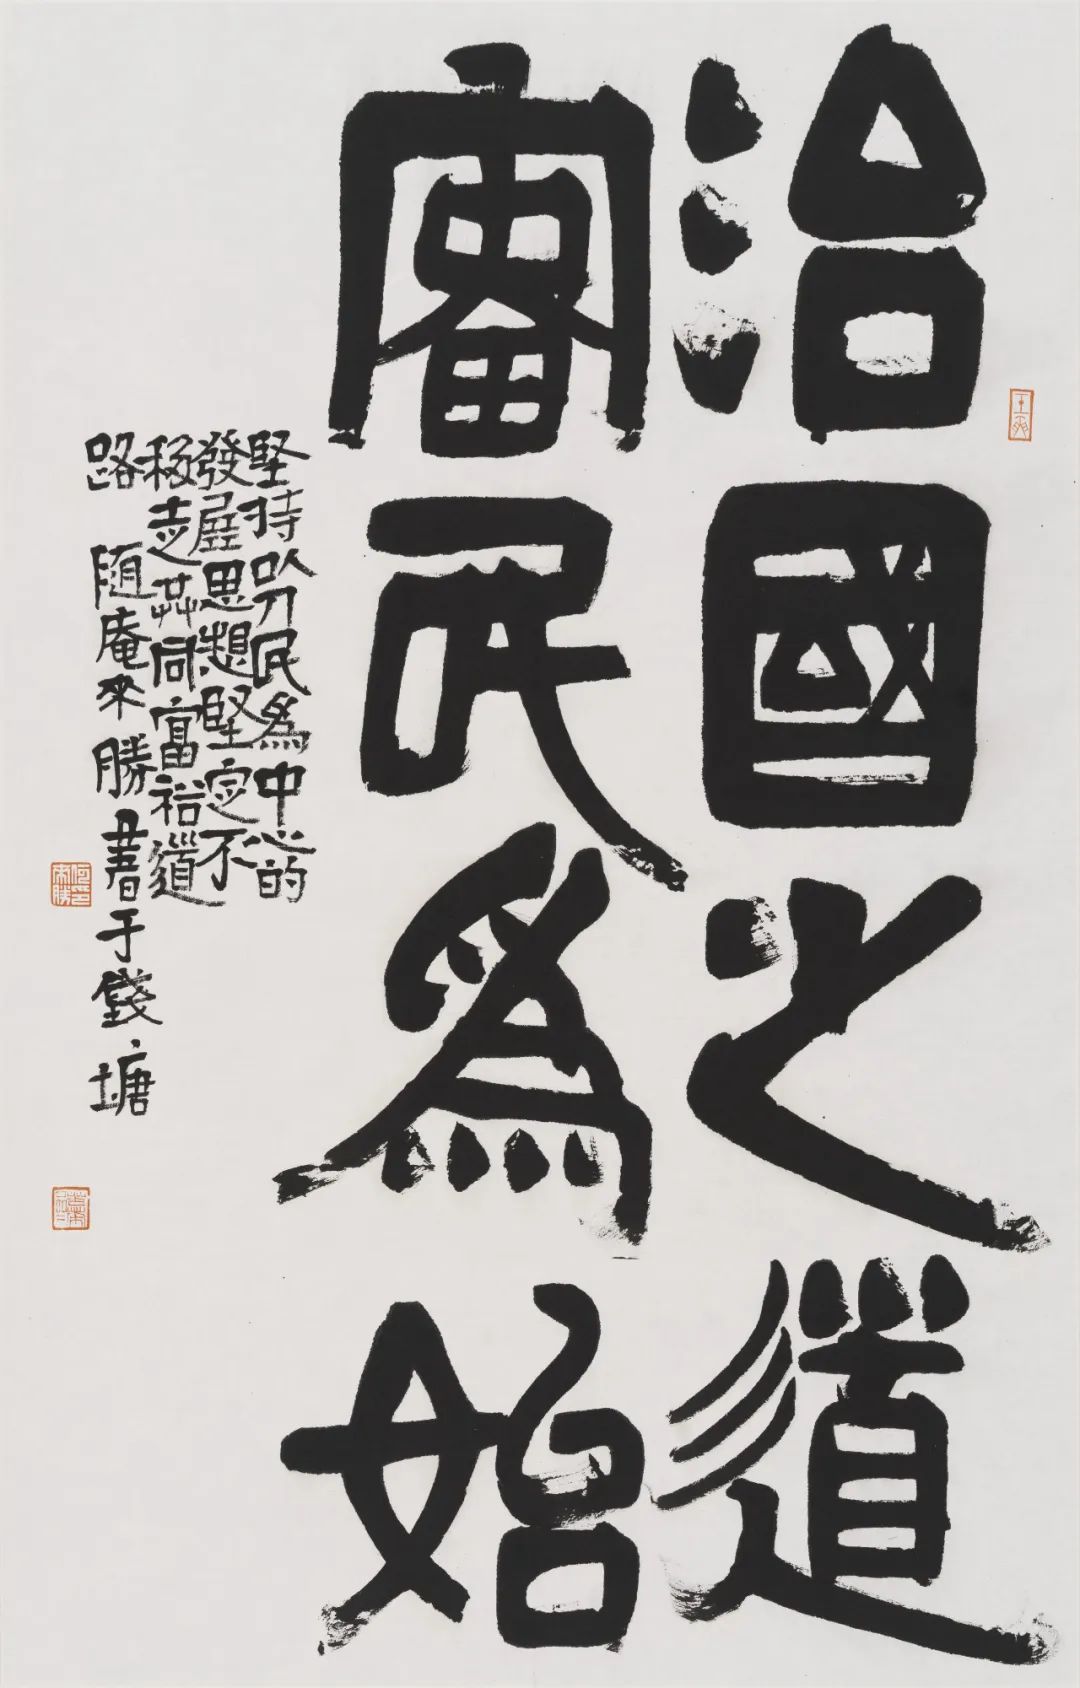 治國之道
富民爲始
堅持以人民爲中心的
發展思想堅定不
移走共同富裕道
路 随庵來勝書于錢塘